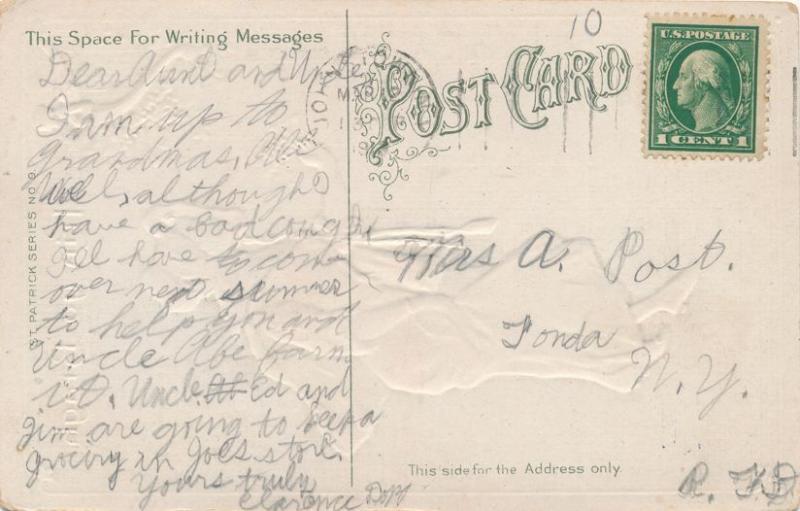 This Space For Writing Messages
10
POST CARD
U.S. POSTAGE
1 CENT 1
MAR
Dear Aunt and Uncle
I am up to
Grandmas,
Well, although I
have a bad cough
I'll have to come
over next summer
to help you and
Uncle Abe farm
it. Uncle Ed and
Jim are going to keep a
grocery in Joes store.
Yours truly
Clarence
Mrs A. Post.
Fonda
N.Y.
R. F. D
ST. PATRICK SERIES NO. 9.
This side for the Address only.